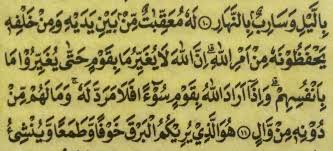 بِالَّيْلِ وَسَارِبٌۢ بِالنَّهَارِ ۝١٠ لَهٗ مُعَقِّبٰتٌ مِّنْۢ بَيْنِ يَدَيْهِ وَمِنْ خَلْفِهٖ
يَحْفَظُوْنَهٗ مِنْ اَمْرِ اللّٰهِ ۗ اِنَّ اللّٰهَ لَا يُغَيِّرُ مَا بِقَوْمٍ حَتّٰى يُغَيِّرُوْا مَا
بِاَنْفُسِهِمْ ۗ وَاِذَآ اَرَادَ اللّٰهُ بِقَوْمٍ سُوْۤءًا فَلَا مَرَدَّ لَهٗ ۚ وَمَا لَهُمْ مِّنْ
دُوْنِهٖ مِنْ وَّالٍ ۝١١ هُوَ الَّذِيْ يُرِيْكُمُ الْبَرْقَ خَوْفًا وَّطَمَعًا وَّيُنْشِئُ